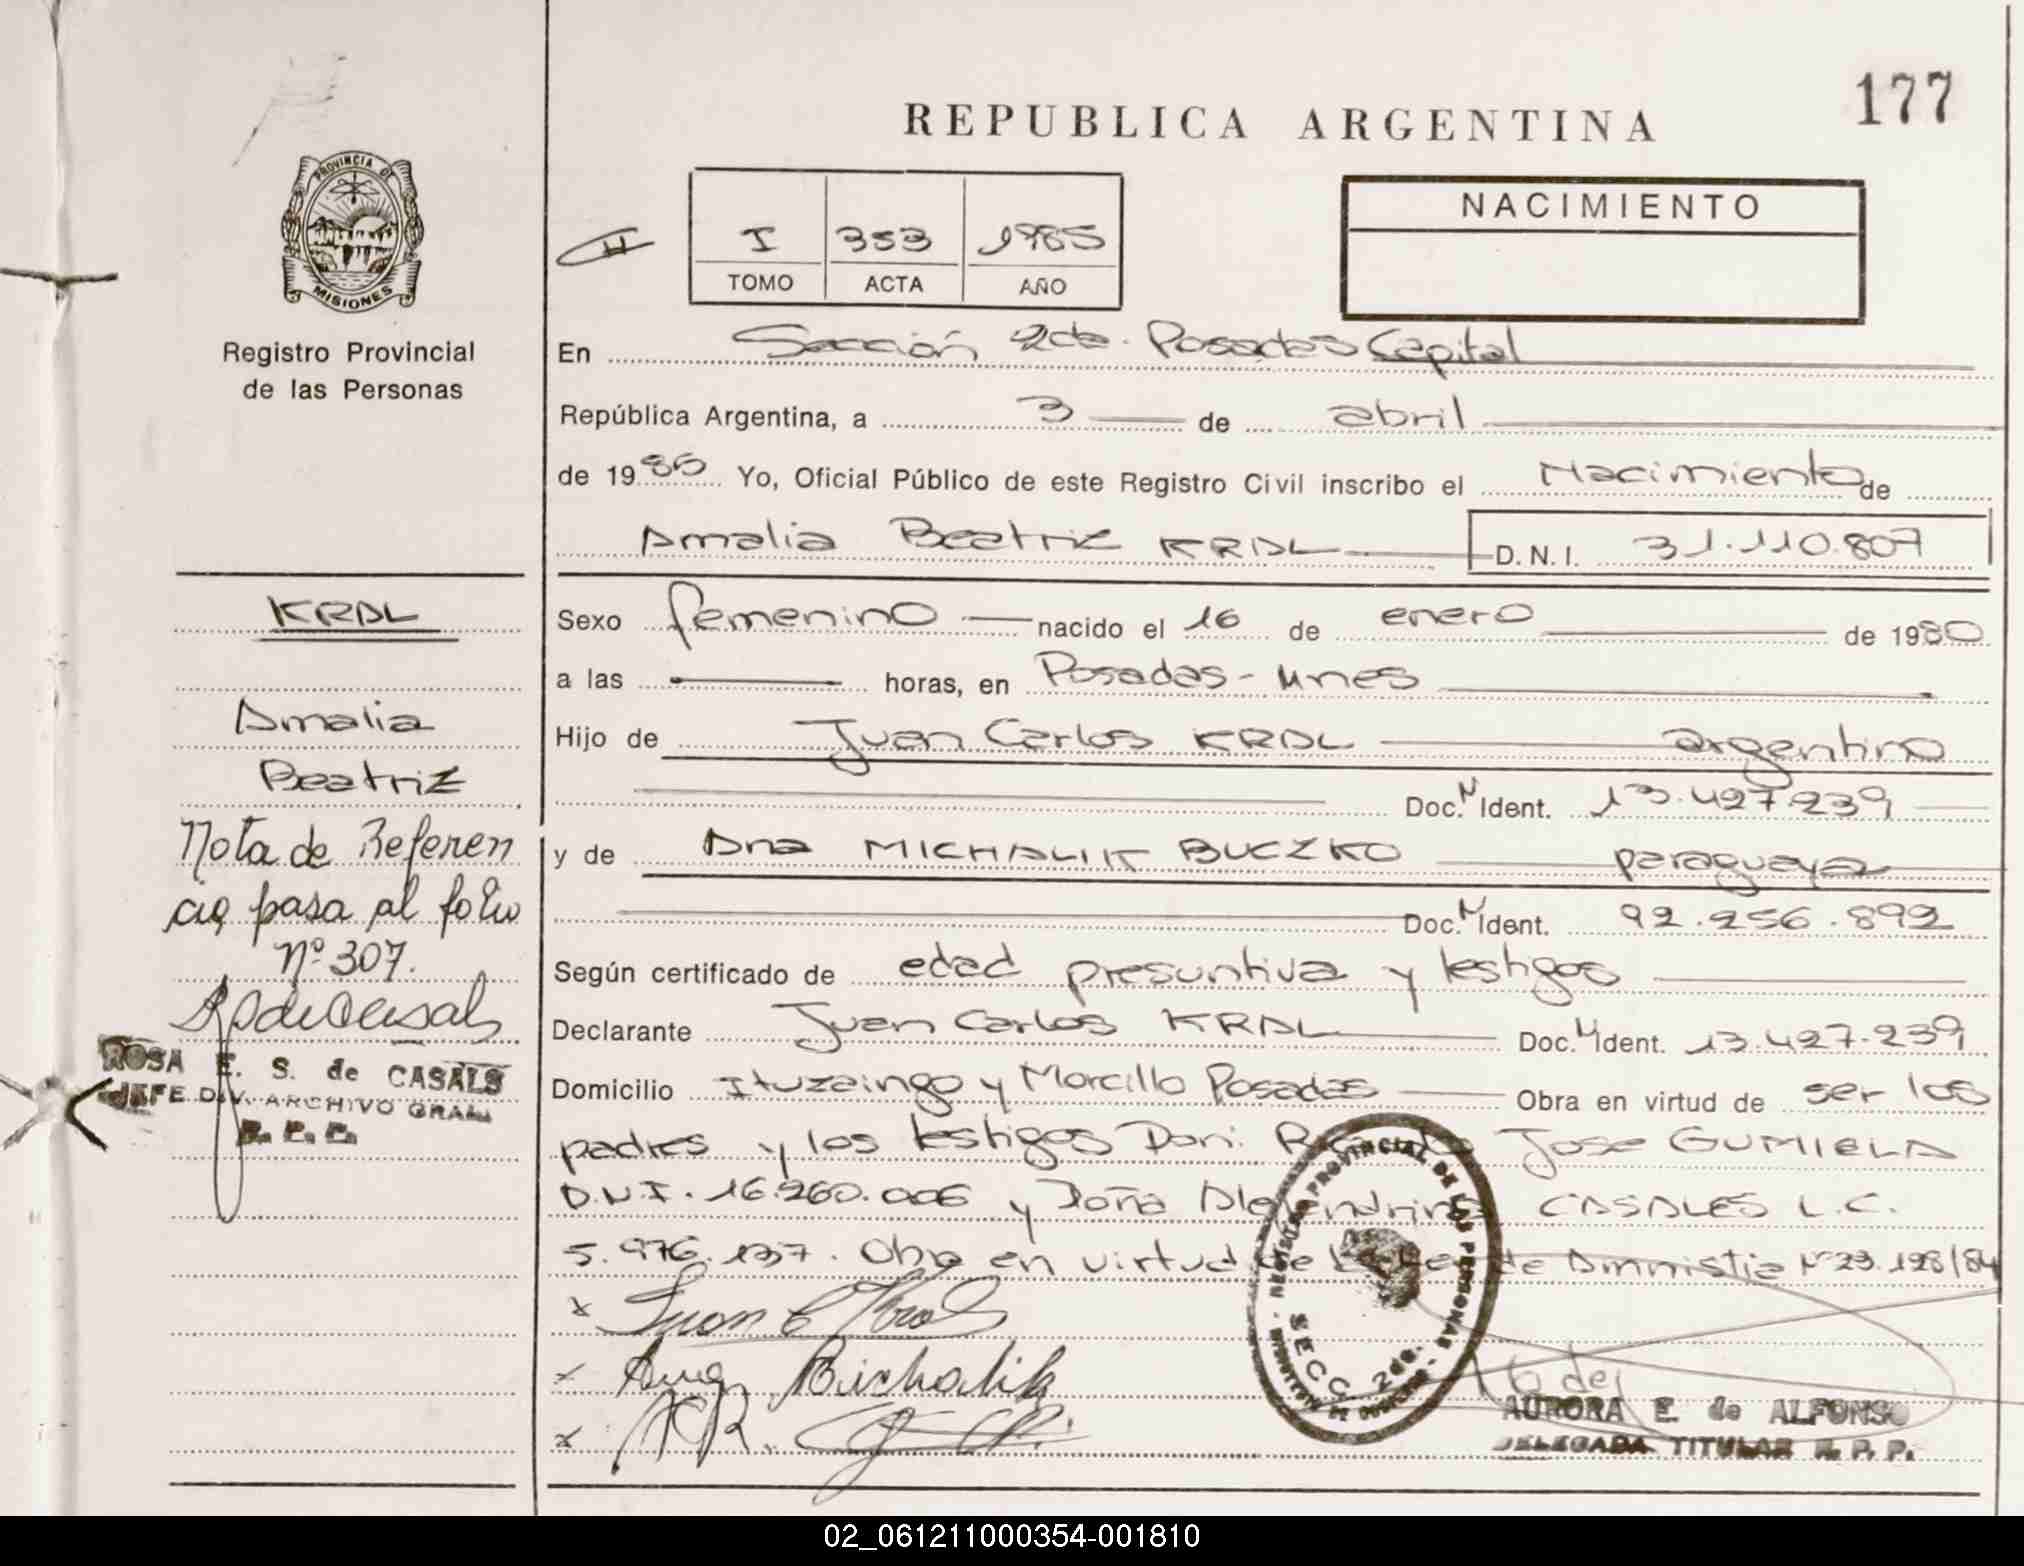 177
REPUBLICA ARGENTINA
PROVINCIA DE
MISIONES
Registro Provincial
de las Personas
I 353 1985
TOMO ACTA AÑO
NACIMIENTO
En Sección 2da. Posadas Capital
República Argentina, a 3 de abril
de 1985 Yo, Oficial Público de este Registro Civil inscribo el Nacimiento de
Amalia Beatriz KRAL D.N.I. 31.110.807
Sexo femenino nacido el 16 de enero de 1980
a las horas, en Posadas - Mnes
Hijo de Juan Carlos KRAL argentino
Doc. N Ident. 13.427.239
y de Ana MICHALIK BUCZKO paraguaya
Doc. N Ident. 92.256.892
Según certificado de edad presuntiva y testigos
Declarante Juan Carlos KRAL Doc. N Ident. 13.427.239
Domicilio Ituzaingo y Morcillo Posadas Obra en virtud de ser los
padres y los testigos Don: Jose GUMIELA
D.N.I. 16.260.006 y Doña CASALES L.C.
5.976.137. Obra en virtud de la Ley de Amnistia N 23.128/84
Juan C Kral
KRAL
Amalia
Beatriz
Nota de Referen
cia pasa al folio
Nº 307.
ROSA E. S. de CASALS
JEFE DIV. ARCHIVO GRAL.
R. P. P.
REGISTRO PROVINCIAL DE LAS PERSONAS
SECC. 2da.
AURORA E. de ALFONSO
DELEGADA TITULAR R. P. P.
02_061211000354-001810